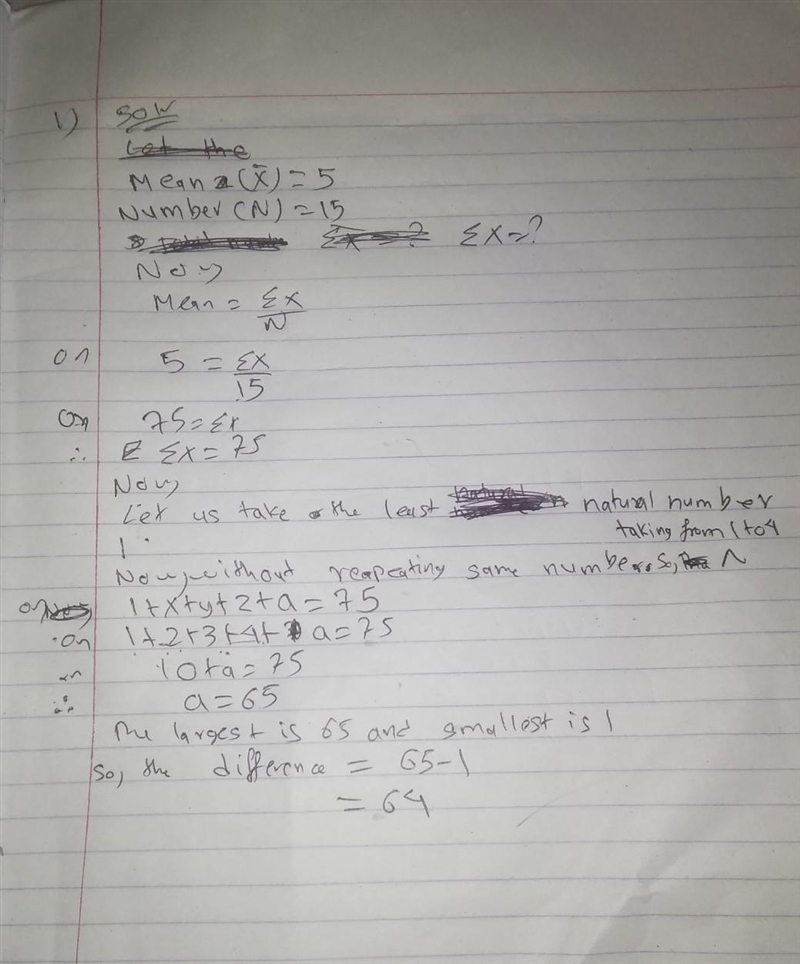 1) Soln
Mean (x̄) = 5
Number (N) = 15
Σx = ?
Now
Mean = Σx/N
or 5 = Σx/15
or 75 = Σx
∴ Σx = 75
Now,
Let us take the least natural number
taking from 1 to 4
1.
Now, without reapeating same number. So,
or 1+x+y+z+a = 75
or 1+2+3+4+a = 75
or 10+a = 75
∴ a = 65
The largest is 65 and smallest is 1
So, the difference = 65-1
= 64